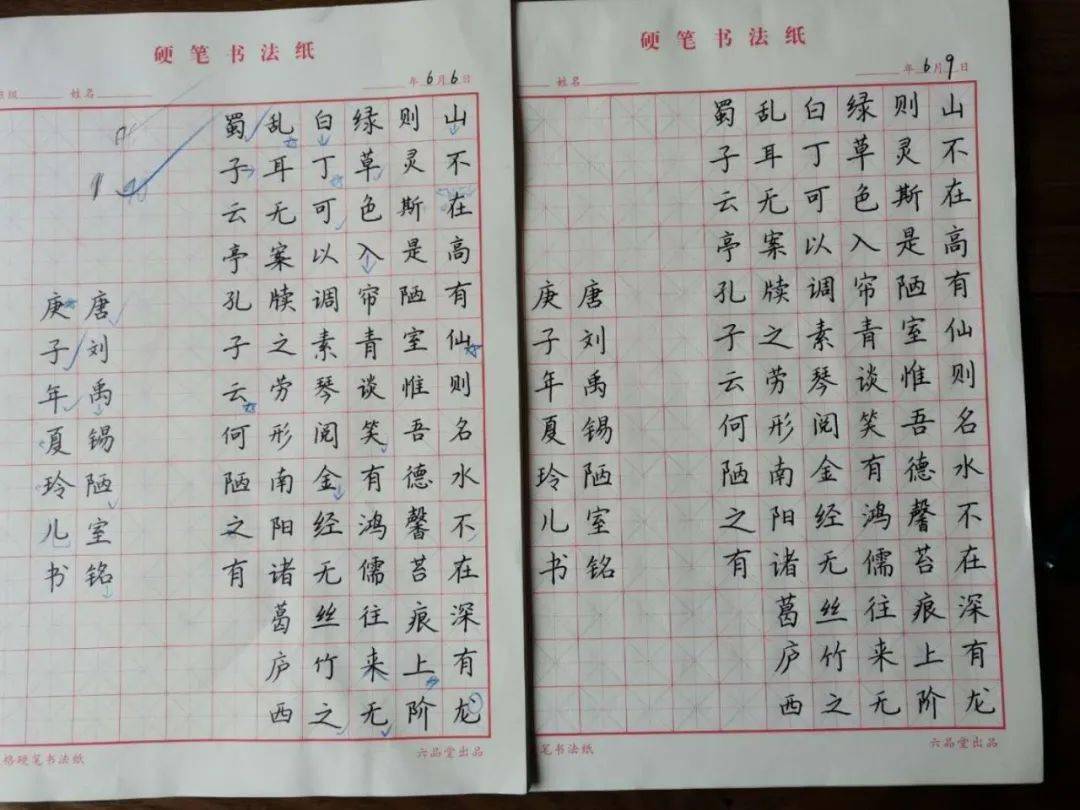 硬笔书法纸
级 姓名 年6月6日
山不在高有仙则名水不在深有龙
则灵斯是陋室惟吾德馨苔痕上阶
绿草色入帘青谈笑有鸿儒往来无
白丁可以调素琴阅金经无丝竹之
乱耳无案牍之劳形南阳诸葛庐西
蜀子云亭孔子云何陋之有
唐刘禹锡陋室铭
庚子年夏玲儿书
格硬笔书法纸 六品堂出品
硬笔书法纸
姓名 年6月9日
山不在高有仙则名水不在深有龙
则灵斯是陋室惟吾德馨苔痕上阶
绿草色入帘青谈笑有鸿儒往来无
白丁可以调素琴阅金经无丝竹之
乱耳无案牍之劳形南阳诸葛庐西
蜀子云亭孔子云何陋之有
唐刘禹锡陋室铭
庚子年夏玲儿书
笔书法纸 六品堂出品